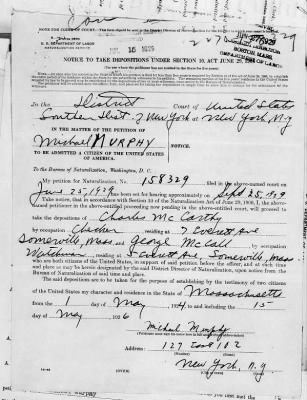 NOTE FOR CLERK OF COURT:
U. S. DEPARTMENT OF LABOR
NATURALIZATION SERVICE
NOTICE TO TAKE DEPOSITIONS UNDER SECTION 10, ACT JUNE 29, 1906
In the District Court of United States
Southern Dist. of New York at New York, N.Y
IN THE MATTER OF THE PETITION OF
Michael MURPHY
NOTICE.
TO BE ADMITTED A CITIZEN OF THE UNITED STATES
OF AMERICA.
To the Bureau of Naturalization, Washington, D. C.
My petition for Naturalization No. 158329 filed in the above-named court on
June 25, 1929, has been set for hearing approximately on Sept 25, 1929
Take notice, that in accordance with Section 10 of the Naturalization Act of June 29, 1906, I, the above-
named petitioner in the above-entitled proceeding now pending in the above-entitled court, will proceed to
take the depositions of Charles McCarthy
by occupation Checker, residing at 7 Everett Ave
Somerville, Mass and George McCall by occupation
Watchman, residing at 5 Everett Ave, Somerville, Mass
So are both citizens of the United States, in support of said petition before the officer, and at such time
and place as may be hereafter designated by the said District Director of Naturalization, upon notice from the
Bureau of Naturalization of said time and place.
The said depositions are to be taken for the purpose of establishing by the testimony of two citizens
of the United States my character and residence in the State of Massachusetts
from the 1 day of May, 1924, to and including the 15
day of May, 1926
Michael Murphy
Address: 127 East 102
New York, N.Y.